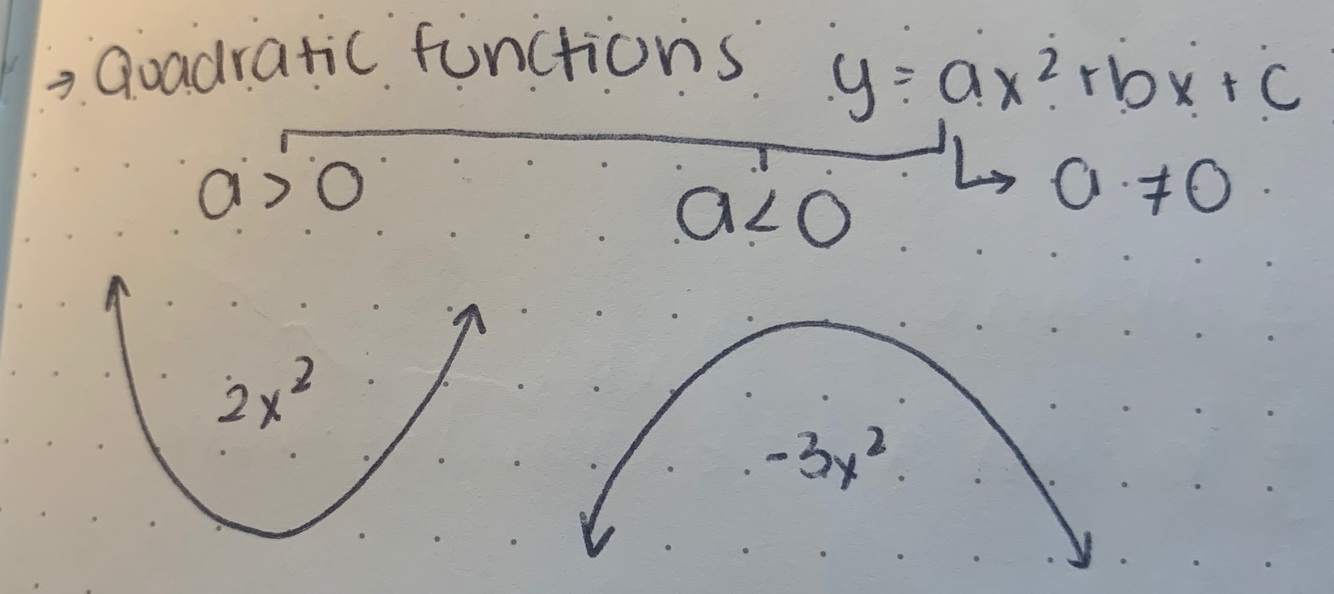 → Quadratic functions y = ax² + bx + c
a > 0 a < 0 ↳ a ≠ 0
2x² -3x²